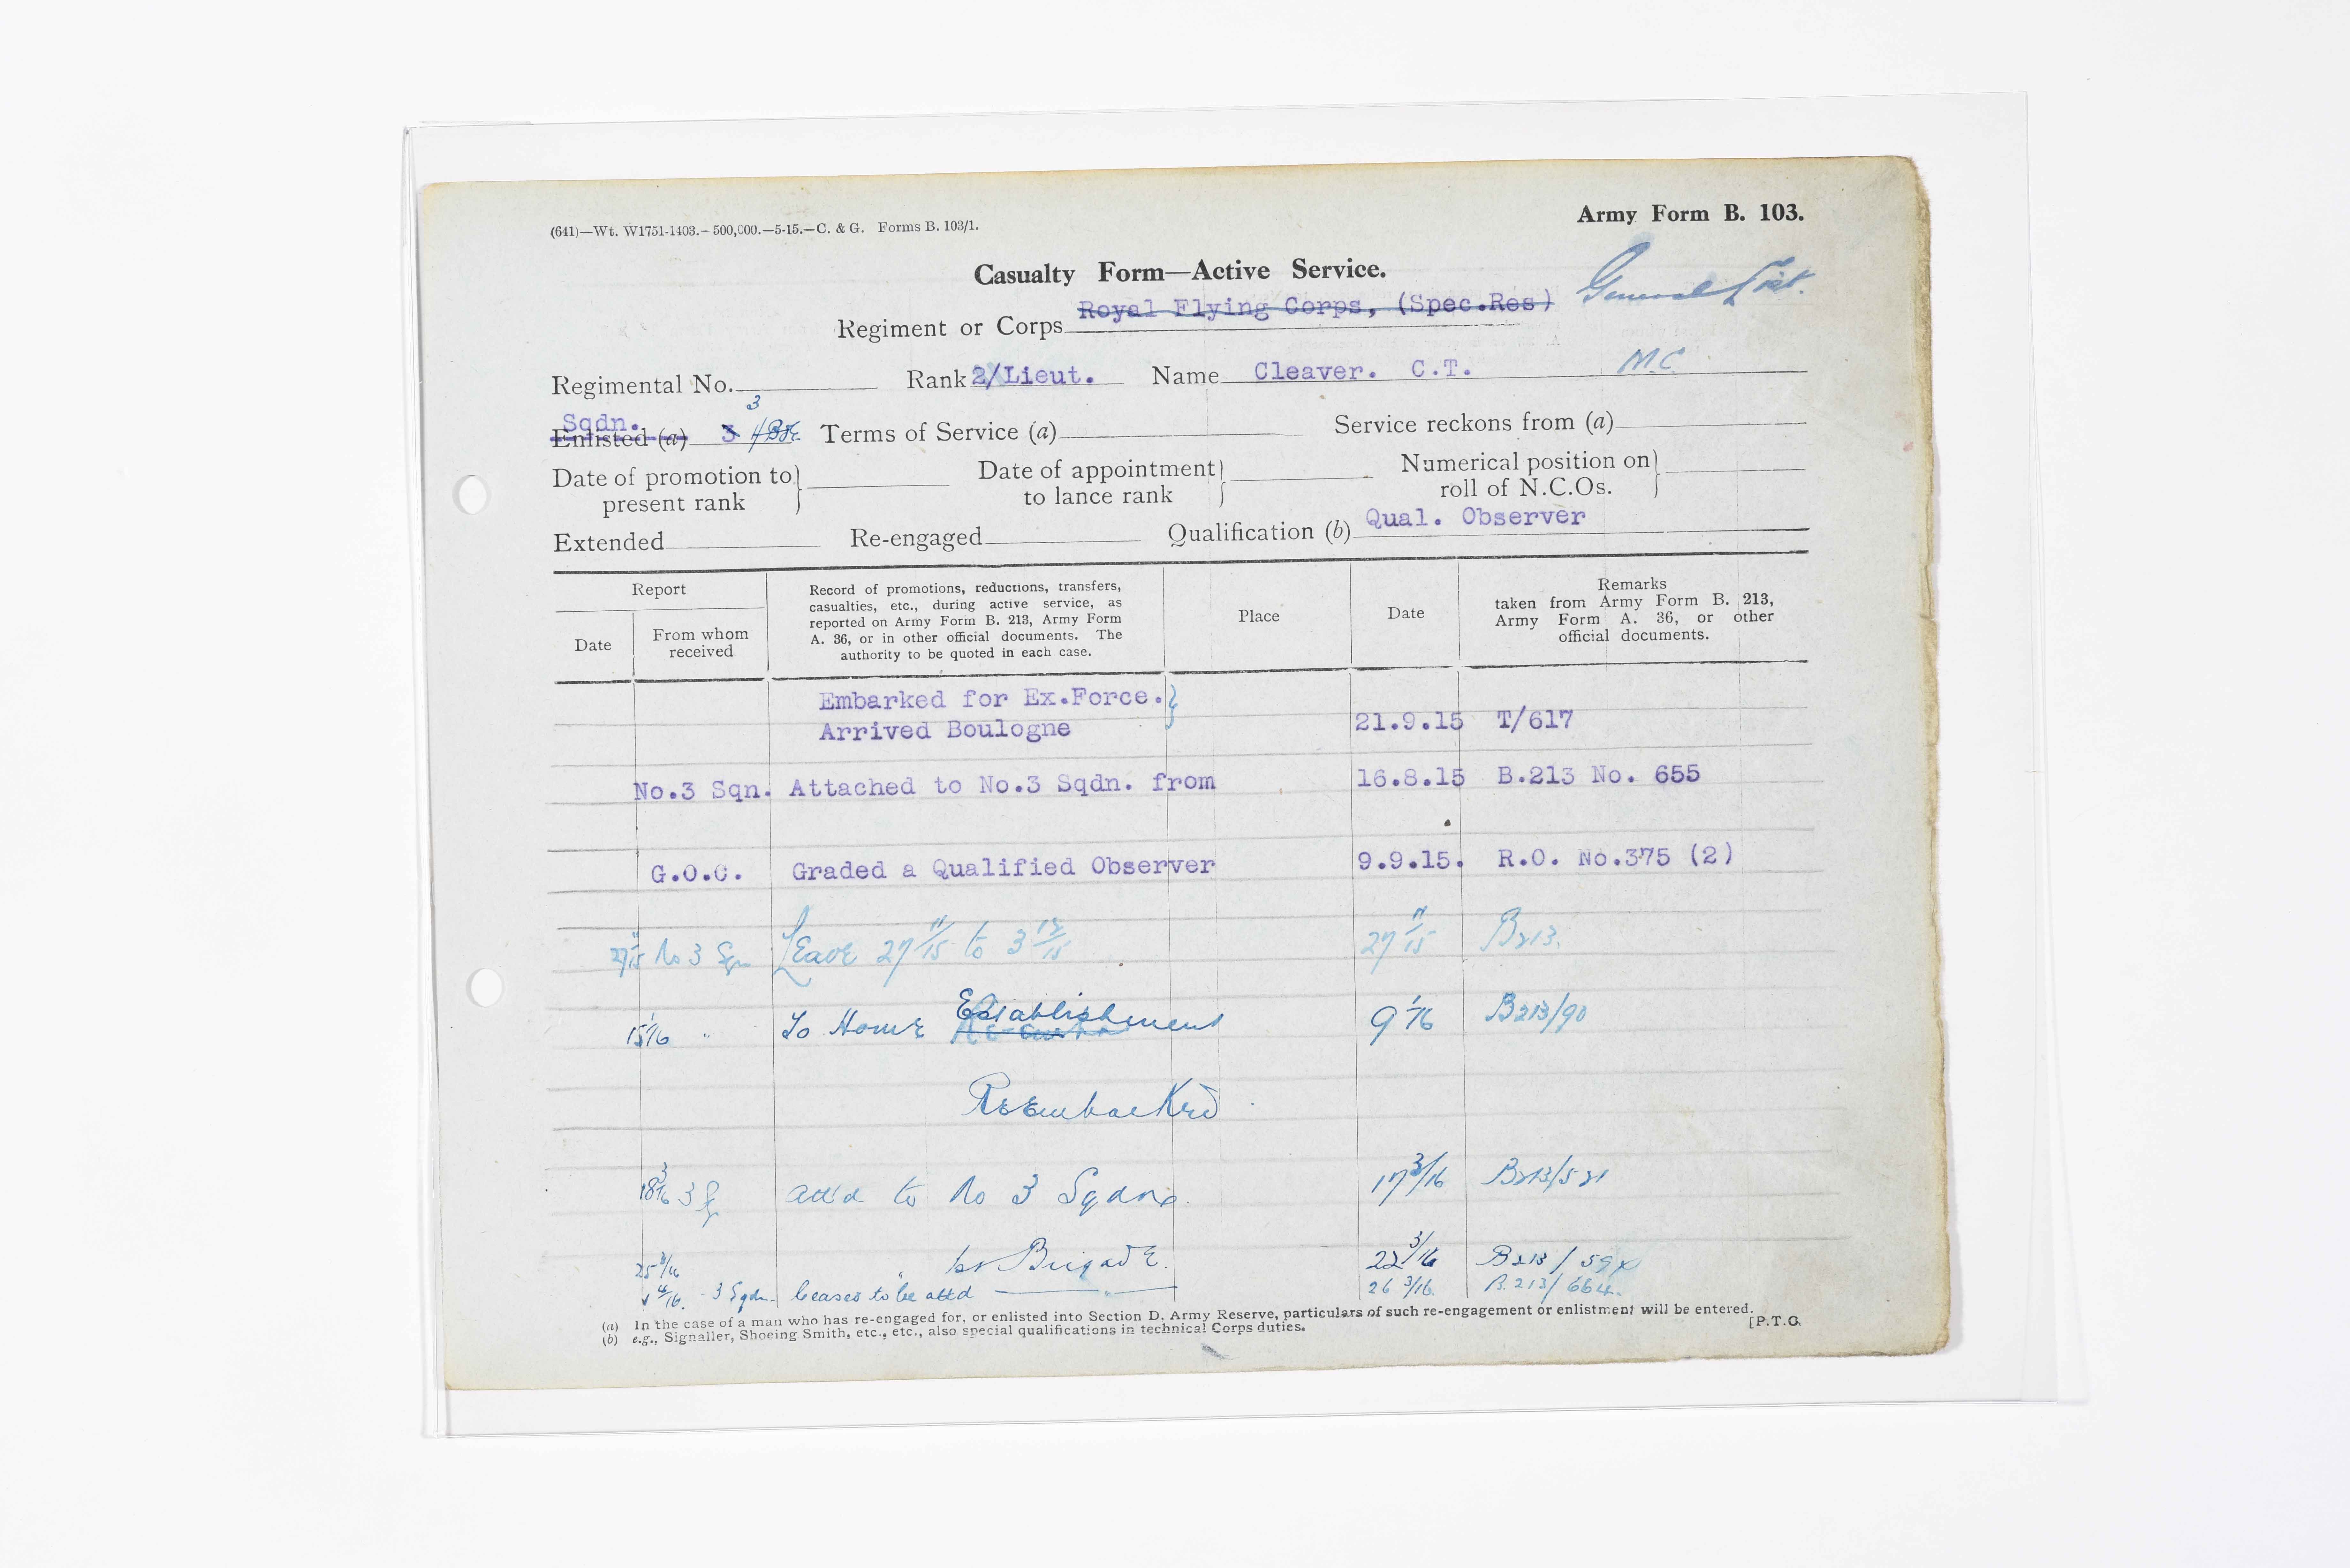 (641)—Wt. W1751-1403.—500,000.—5-15.—C. & G. Forms B. 103/1.
Army Form B. 103.
Casualty Form—Active Service.
General List.
Regiment or Corps Royal Flying Corps, (Spec.Res)
Regimental No. Rank 2/Lieut. Name Cleaver. C.T. M.C
3
Sqdn.
Enlisted (a) 3 Terms of Service (a) Service reckons from (a)
Date of promotion to present rank } Date of appointment to lance rank } Numerical position on roll of N.C.Os. }
Extended Re-engaged Qualification (b) Qual. Observer
Report
Date
From whom received
Record of promotions, reductions, transfers,
casualties, etc., during active service, as
reported on Army Form B. 213, Army Form
A. 36, or in other official documents. The
authority to be quoted in each case.
Place
Date
Remarks
taken from Army Form B. 213,
Army Form A. 36, or other
official documents.
Embarked for Ex.Force. }
Arrived Boulogne 21.9.15 T/617
No.3 Sqn. Attached to No.3 Sqdn. from 16.8.15 B.213 No. 655
G.O.C. Graded a Qualified Observer 9.9.15. R.O. No.375 (2)
27 11/15 No 3 Sqn Leave 27 11/15 to 3 12/15 27 11/15 B213.
15 1/16 " To Home Establishment 9 1/16 B213/90
Reembarked
18 3/16 3 Sq att'd to No 3 Sqdn. 17 3/16 B213/521
25 3/16 " Brigade. 22 3/16 B213/
4/16. 3 Sqdn. Ceases to be attd — " — 26 3/16. B.213/664.
(a) In the case of a man who has re-engaged for, or enlisted into Section D, Army Reserve, particulars of such re-engagement or enlistment will be entered.
(b) e.g., Signaller, Shoeing Smith, etc., etc., also special qualifications in technical Corps duties.
[P.T.O.